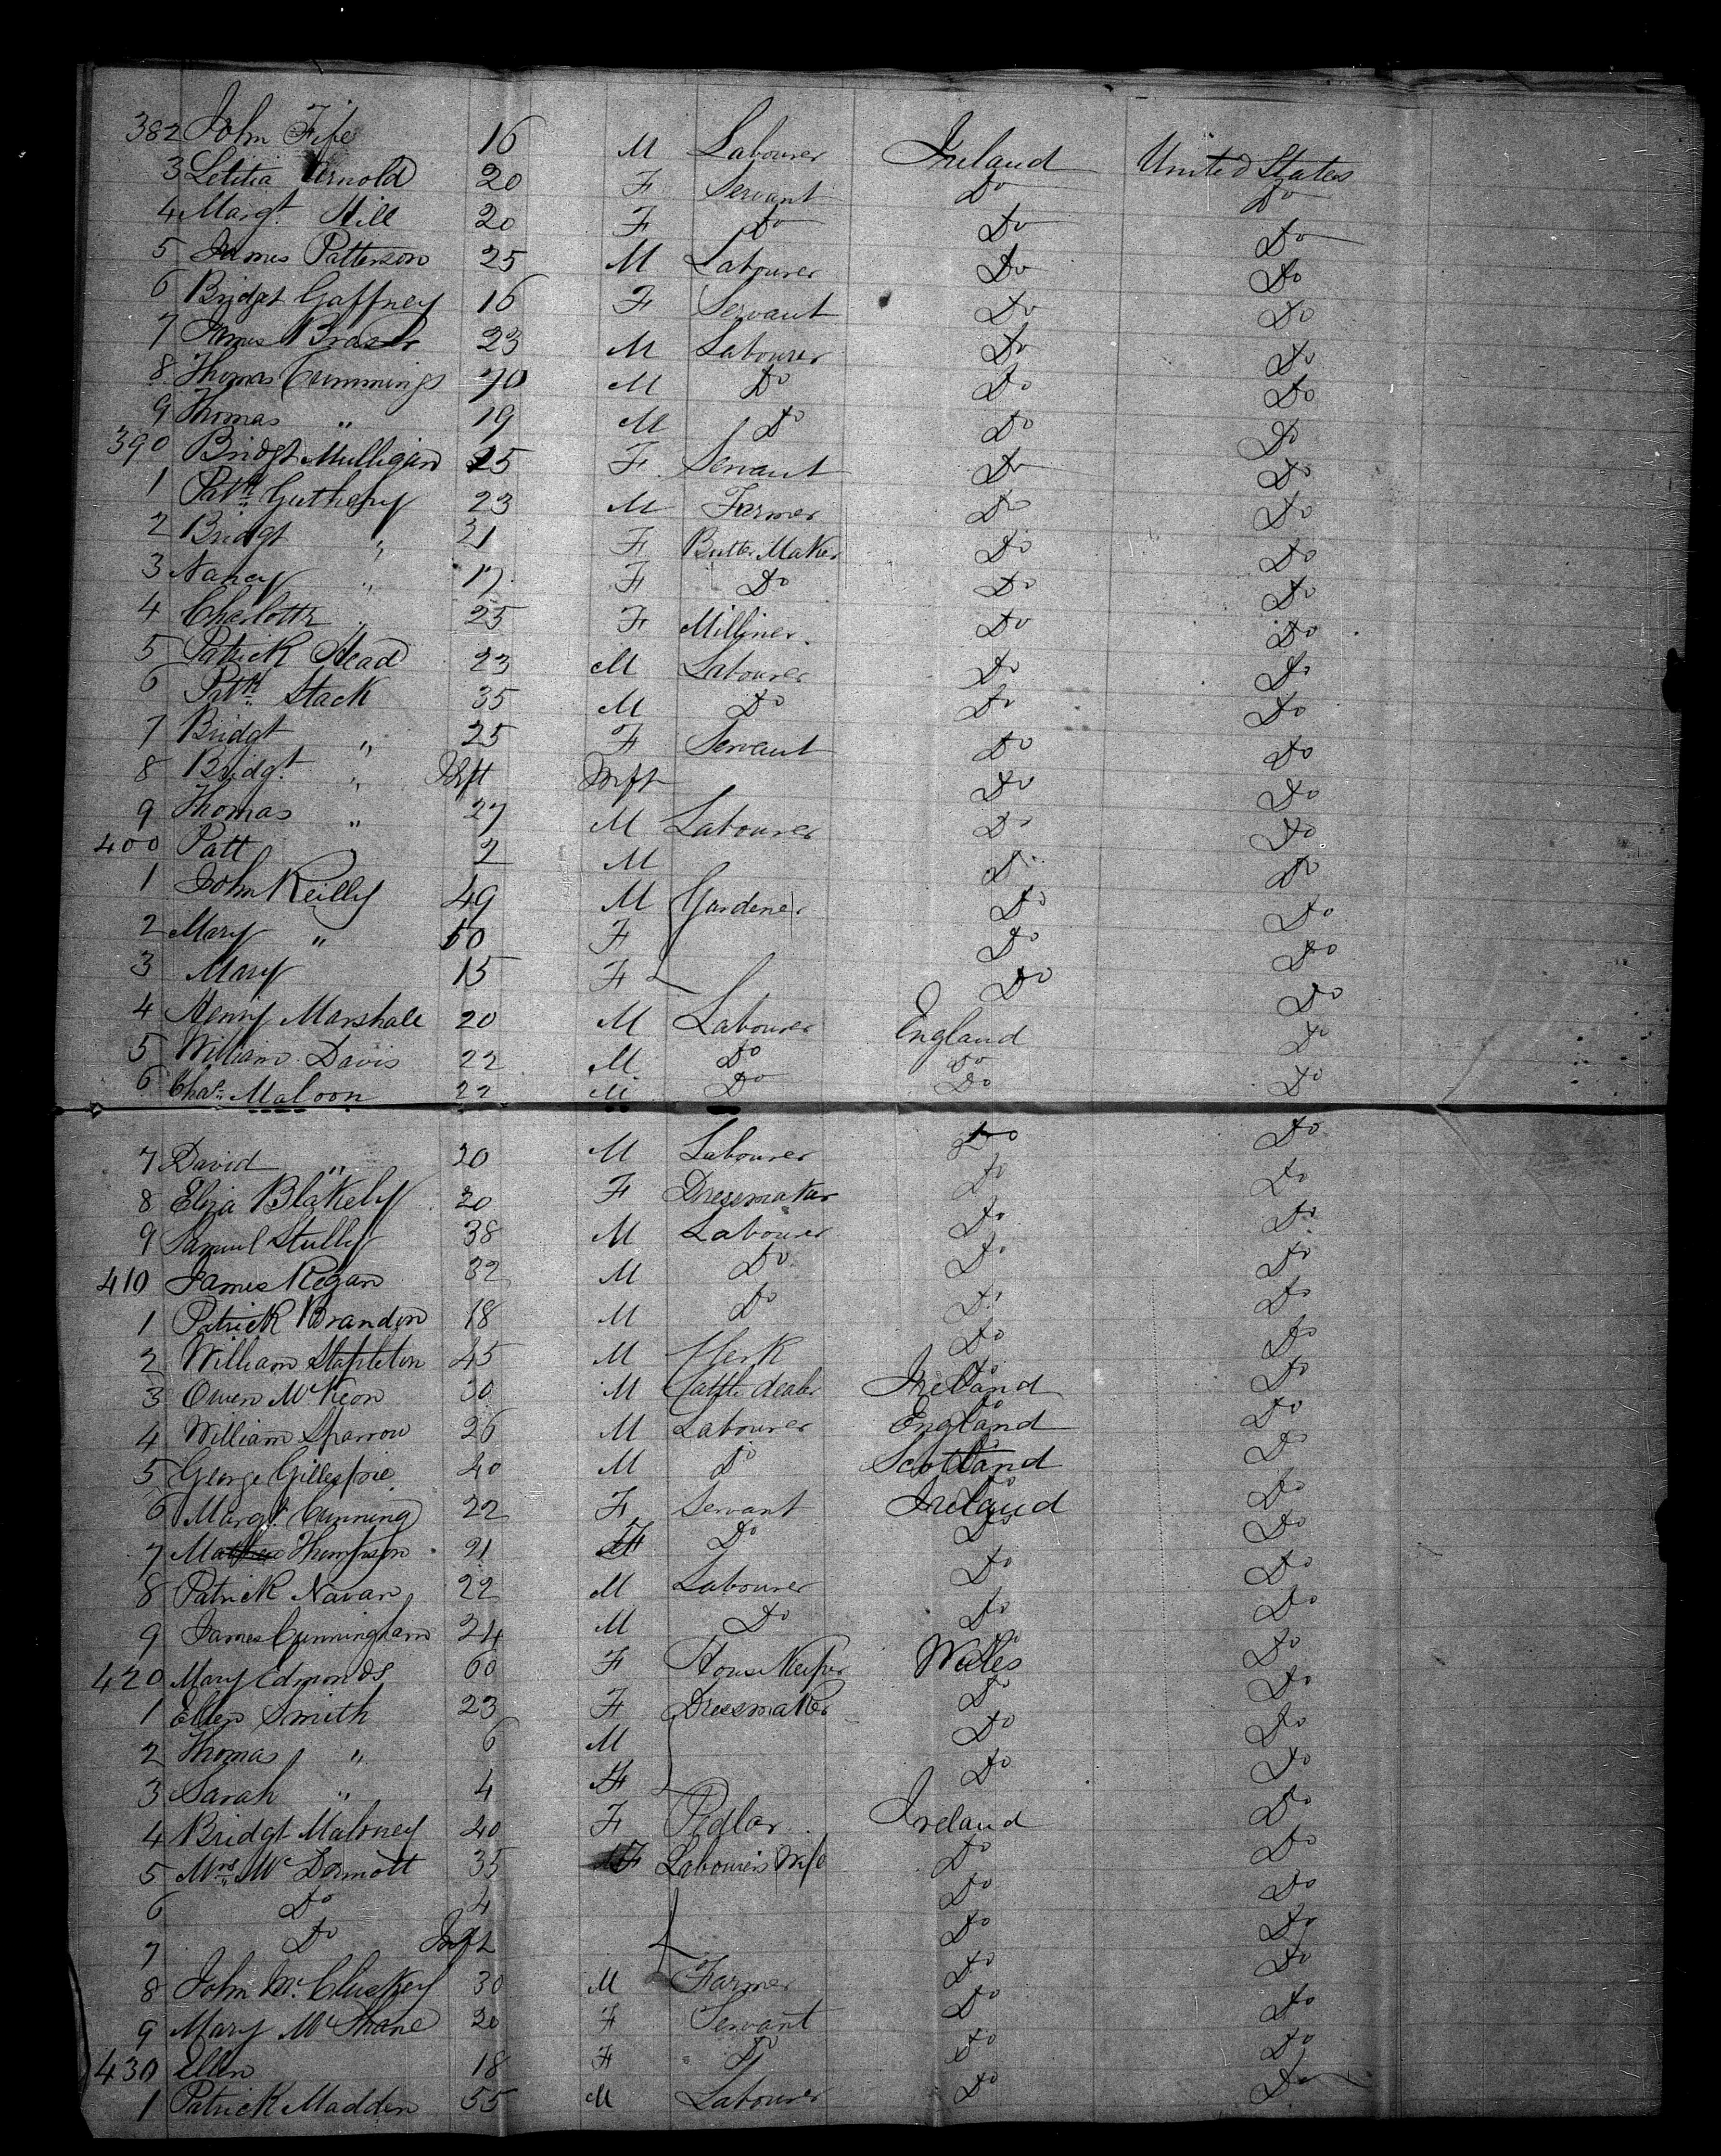 382 John Fife 16 M Labourer Ireland United States
3 Letitia Arnold 20 F Servant Do Do
4 Margt. Hill 20 F Do Do Do
5 James Patterson 25 M Labourer Do Do
6 Bridgt Gaffney 16 F Servant Do Do
7 James 23 M Labourer Do Do
8 Thomas Cummings 70 M Do Do Do
9 Thomas " 19 M Do Do Do
390 Bridgt Mulligan 25 F Servant Do Do
1 Patk. Gutheny 23 M Farmer Do Do
2 Bridgt " 21 F Butter Maker Do Do
3 Nancy " 17 F Do Do Do
4 Charlotte " 25 F Milliner. Do Do
5 Patrick Head 23 M Labourer Do Do
6 Patk. Stack 35 M Do Do Do
7 Bridgt " 25 F Servant Do Do
8 Bridgt. " Inft Inft Do Do
9 Thomas " 27 M Labourer Do Do
400 Patt 2 M Do Do
1 John Reilly 49 M Gardener Do Do
2 Mary " 50 F Do Do
3 Mary 15 F Do Do
4 Henry Marshall 20 M Labourer England Do
5 William Davis 22 M Do Do Do
6 Chas. Maloon 22 M Do Do Do
7 David " 20 M Labourer Do Do
8 Eliza Blakely 20 F Dressmaker Do Do
9 Samuel Stully 38 M Labourer Do Do
410 James Regan 32 M Do Do Do
1 Patrick Brandon 18 M Do Do Do
2 William Stapleton 45 M Clerk Do Do
3 Owen McKeon 30 M Cattle dealer Ireland Do
4 William Sparrow 26 M Labourer England Do
5 George Gillespie 40 M Do Scotland Do
6 Margt. Cunning 22 F Servant Ireland Do
7 Thompson 21 F Do Do Do
8 Patrick Navan 22 M Labourer Do Do
9 James Cunningham 24 M Do Do Do
420 Mary Edmonds 60 F House Keeper Wales Do
1 Ellen Smith 23 F Dressmaker Do Do
2 Thomas " 6 M Do Do
3 Sarah " 4 F Do Do
4 Bridgt Maloney 40 F Pedlar Ireland Do
5 Mrs. McDermott 35 F Labourers Wife Do Do
6 Do 4 Do Do
7 Do Inft Do Do
8 John McCluskey 30 M Farmer Do Do
9 Mary McShane 20 F Servant Do Do
430 Ellen 18 F Do Do Do
1 Patrick Madden 55 M Labourer Do Do